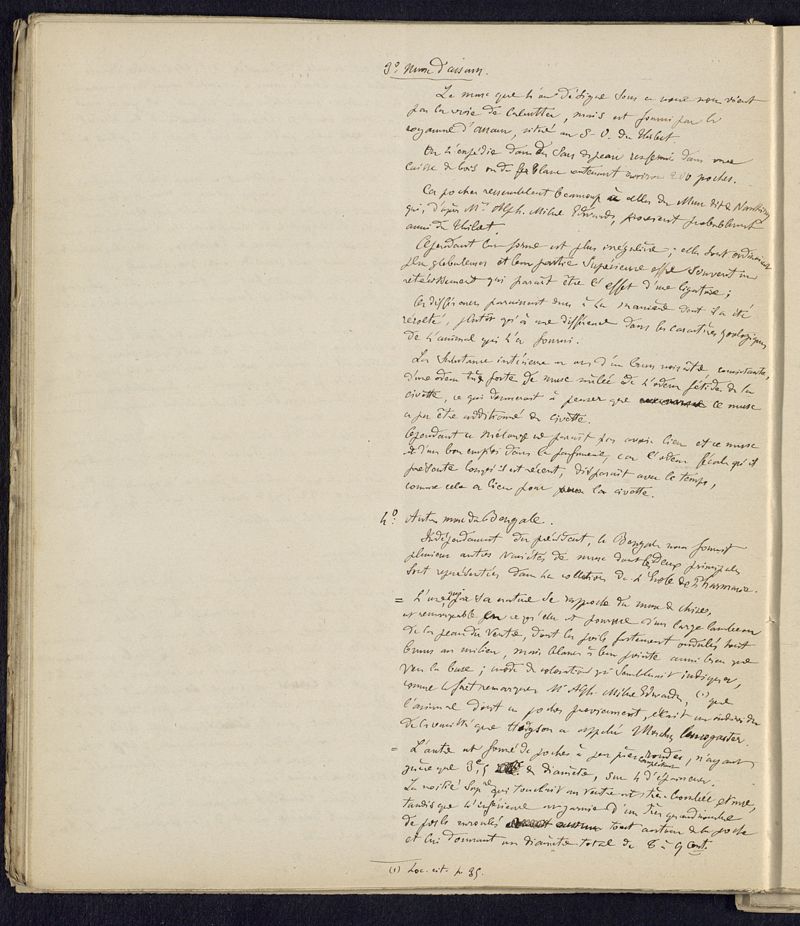 3º Musc d'assam.
Le musc que l'on désigne sous ce nom nous vient
par la voie de Calcutta, mais est fourni par le
royaume d'assam, situé au S-O. du Thibet
On l'expédie dans des sacs de peau renfermés dans une
caisse de bois ou de fer blanc contenant environ 200 poches.
Ces poches ressemblent beaucoup à celles du Musc dit de Nankin
qui, d'après Mr. Alph. Milne Edwards, provient probablement
aussi du Thibet.
Cependant leur forme est plus irrégulière; elles sont ordinairement
plus globuleuses et leur partie supérieure offre souvent un
rétrécissement qui paraît être l'effet d'une ligature;
ces différences paraissent dues à la manière dont il a été
récolté, plutôt qu'à une différence dans les caractères zoologiques
de l'animal qui l'a fourni.
La substance intérieure en est d'un brun noirâtre consistante,
d'une odeur très forte de musc mêlée de l'odeur fétide de la
civette, ce qui donnerait à penser que ce musc
a pu être additionné de civette.
Cependant ce mélange ne paraît pas avoir lieu et ce musc
est d'un bon emploi dans la parfumerie, car l'odeur fécale qu'il
présente lorsqu'il est récent, disparaît avec le temps,
comme cela a lieu pour la civette.
4º. Autres muscs du Bengale.
Indépendamment du précédent, le Bengale nous fournit
plusieurs autres variétés de musc dont les deux principales
sont représentées dans la collection de l'École de Pharmacie.
= L'une, qui par sa nature se rapproche du musc de Chine,
est remarquable en ce qu'elle est pourvue d'un large lambeau
de la peau du ventre, dont les poils fortement ondulés sont
bruns au milieu, mais blancs à leur pointe aussi bien que
vers la base; mode de coloration qui semblerait indiquer,
comme le fait remarquer Mr Alph. Milne Edwards, (1) que
l'animal dont ces poches proviennent, était un individu
de la variété que Hodgson a appelée Moschus leucogaster.
= L'autre est formé de poches à peu près rondes, n'ayant
guère que 3c,5 de diamètre, sur 4 d'épaisseur.
La moitié supre qui touchait au ventre est très bombée et nue,
tandis que l'inférieure est garnie d'un très grand nombre
de poils enroulés tout autour de la poche
et lui donnant un diamètre total de 8 à 9 cent.
(1) Loc. cit. p. 35.